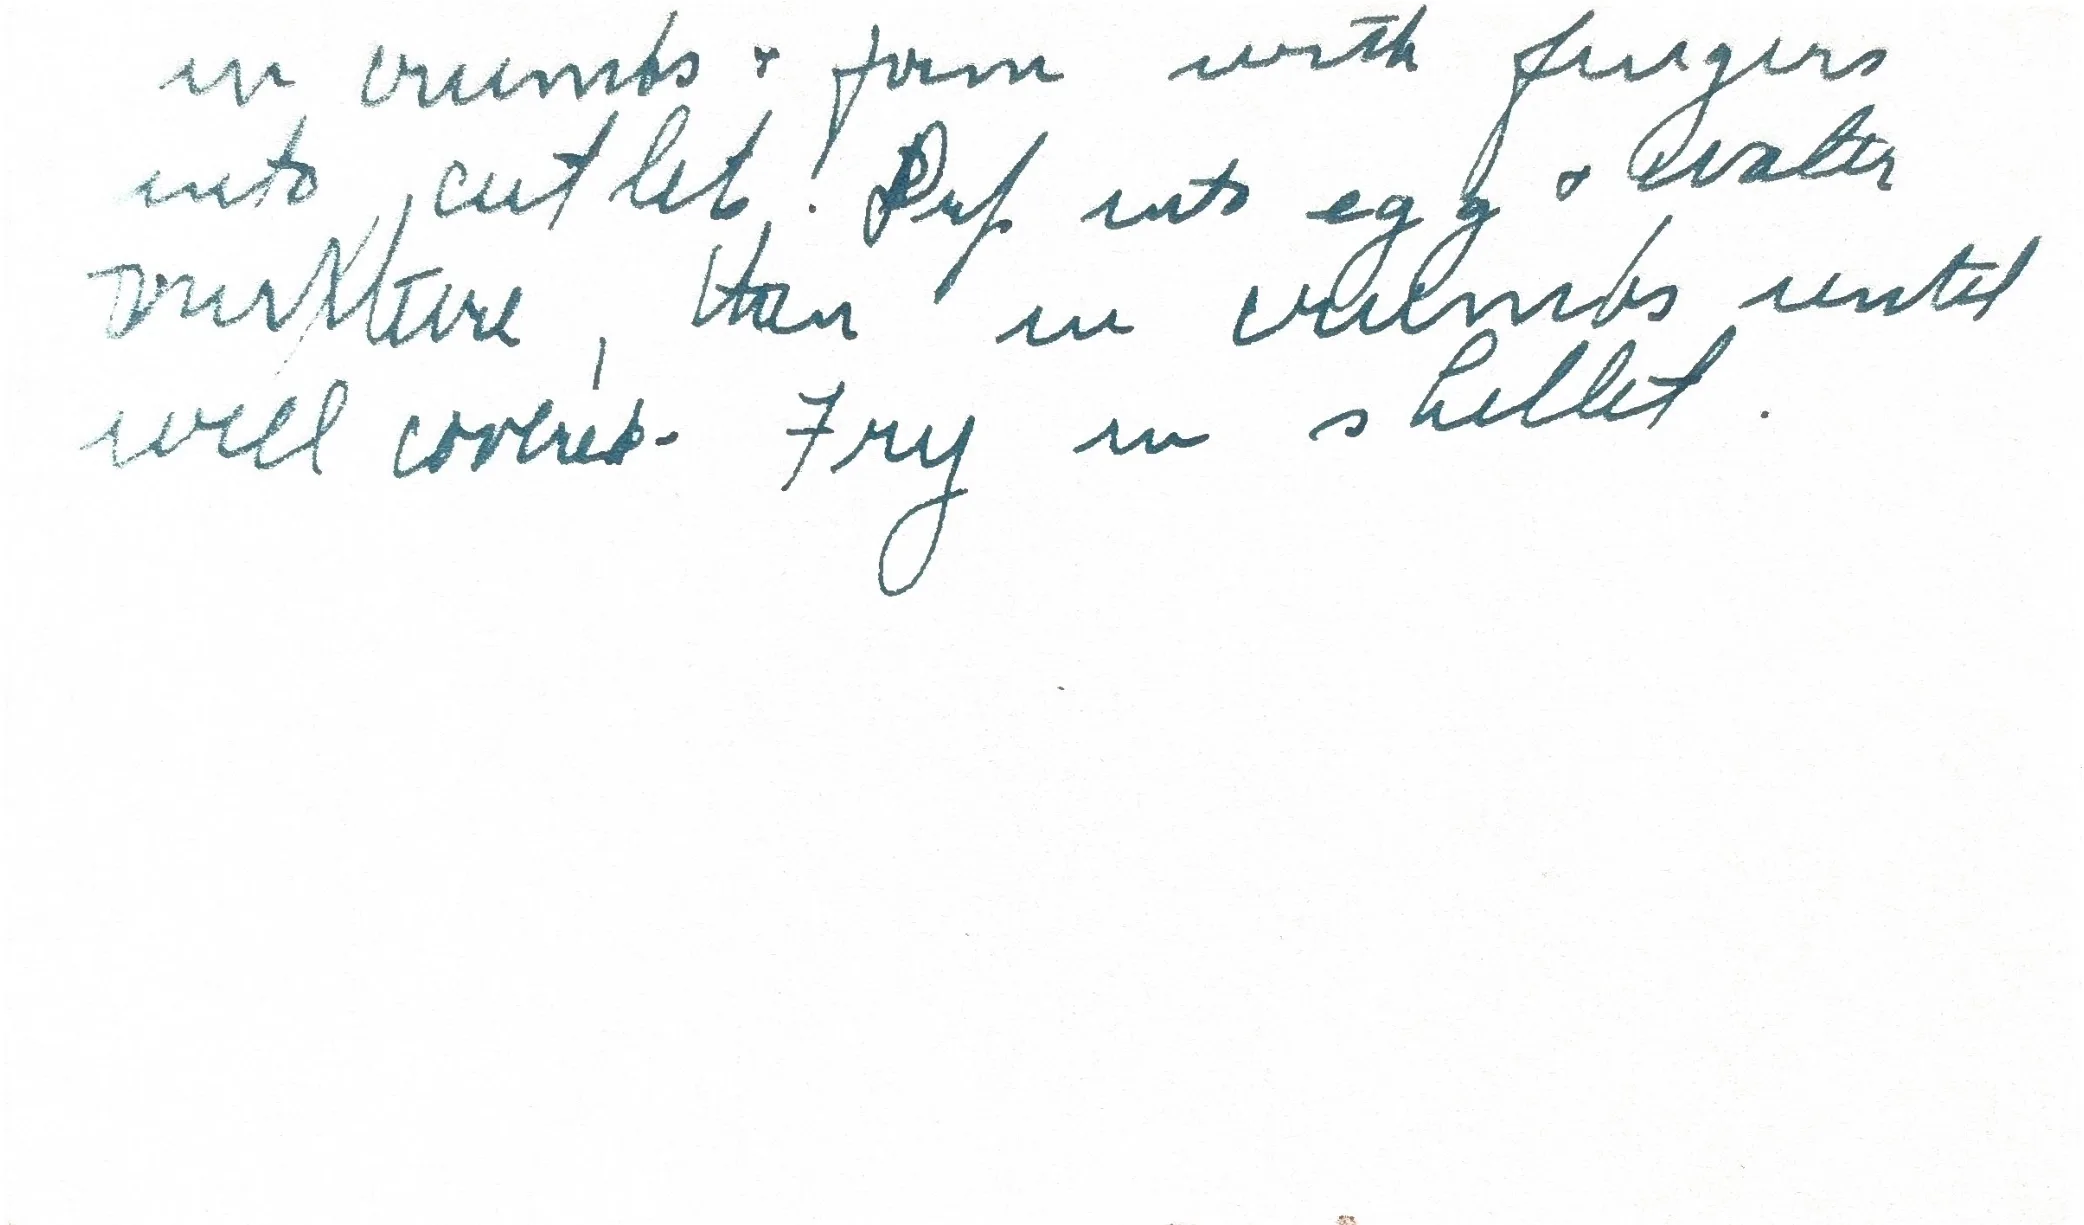 in crumbs & form with fingers
into cutlet. Dip into egg & water
mixture, then in crumbs until
well covered. Fry in skillet.